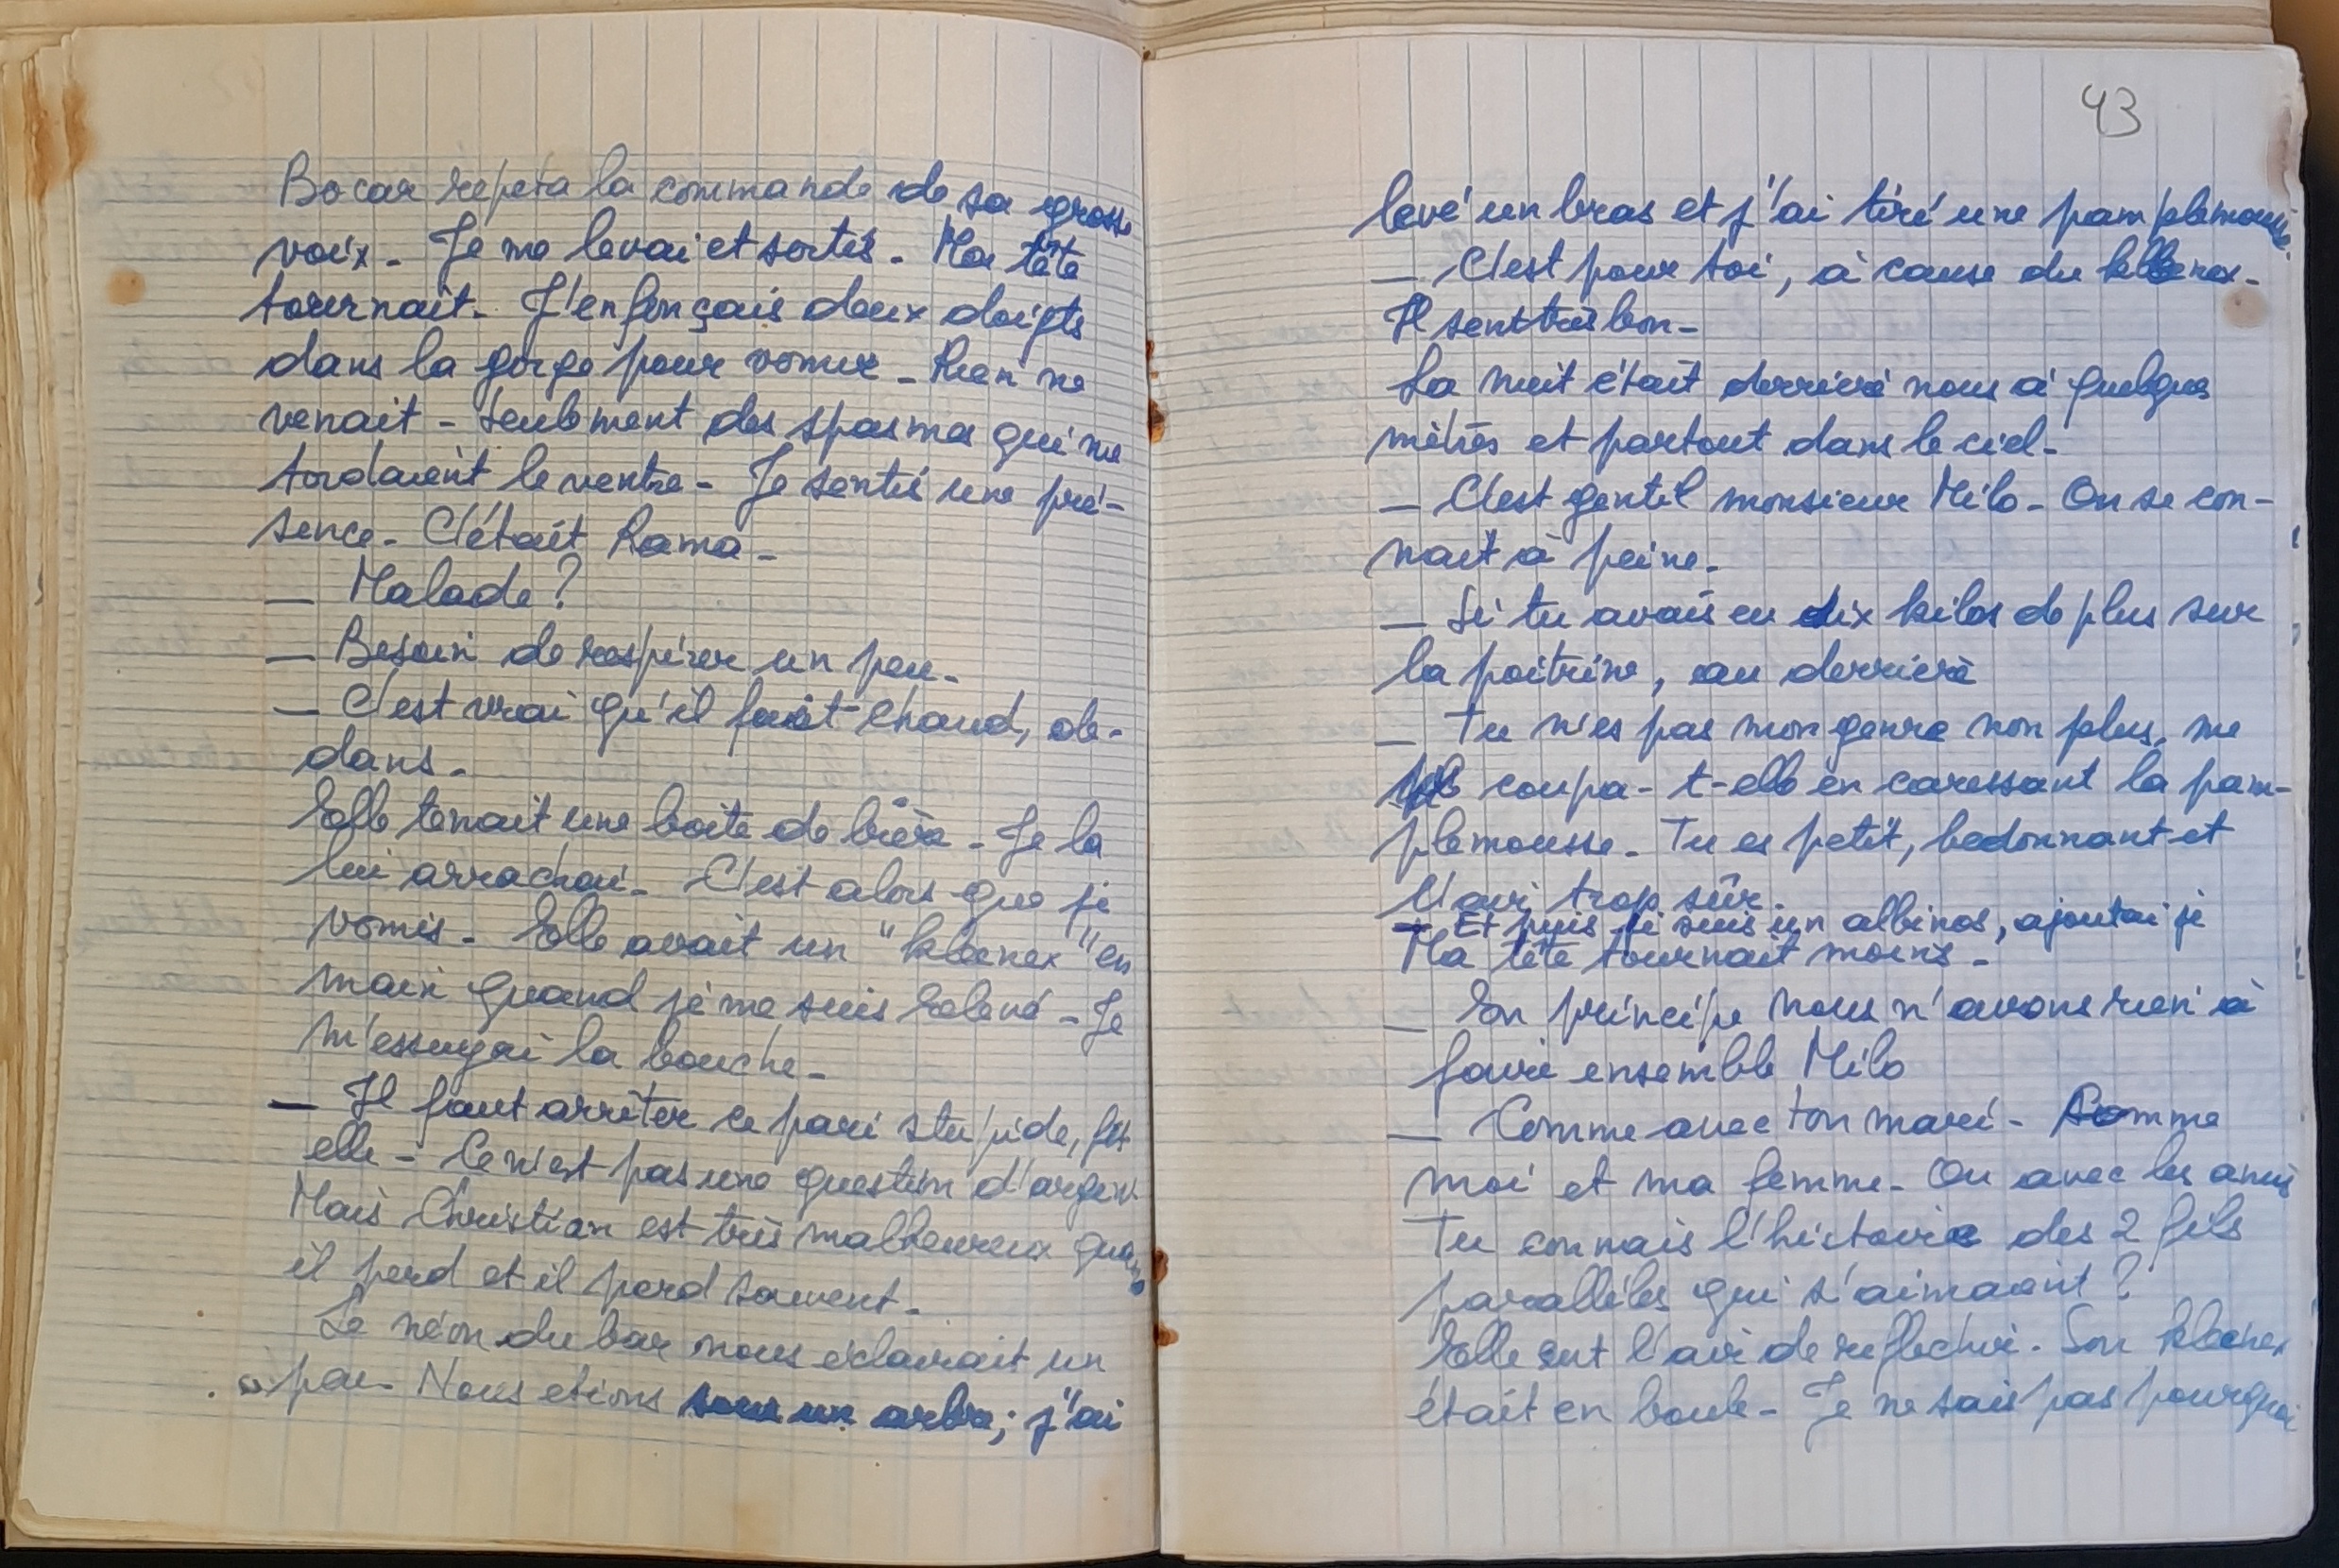 Bocar repeta la commande de sa grosse
voix - Je me levai et sortis - Ma tête
tournait - J'enfonçais deux doigts
dans la gorge pour vomir - Rien ne
venait - Seulement des spasmes qui me
tordaient le ventre - Je sentis une pré-
sence - C'était Rama -
— Malade ?
— Besoin de respirer un peu -
— C'est vrai qu'il fait chaud, de-
dans -
Elle tenait une boite de bière - Je la
lui arrachai - C'est alors que je
vomis - Elle avait un "kleenex" en
main quand je me suis relevé - Je
m'essuyai la bouche -
— Il faut arrêter ce pari stupide, fit
elle - Ce n'est pas une question d'argent
Mais Christian est très malheureux quand
il perd et il perd souvent -
Le néon du bar nous éclairait un
peu - Nous etions sous un arbre ; j'ai
43
levé un bras et j'ai tiré une pamplemousse.
— C'est pour toi, à cause du kleenex -
Il sent très bon -
La nuit était derrière nous à quelques
mètres et partout dans le ciel -
— C'est gentil monsieur Milo - On se con-
nait à peine -
— Si tu avais eu dix kilos de plus sur
la poitrine, au derrière
— Tu n'es pas mon genre non plus, me
coupa-t-elle en caressant la pam-
plemousse - Tu es petit, bedonnant et
l'air trop sûr.
— Et puis je suis un albinos, ajoutai je
Ma tête tournait moins -
— En principe nous n'avons rien à
faire ensemble Milo
— Comme avec ton mari - Comme
moi et ma femme - Ou avec les amis
Tu connais l'histoire des 2 fils
parallèles qui s'aimaient ?
Elle eut l'air de reflechir. Son kleenex
était en boule - Je ne sais pas pourquoi